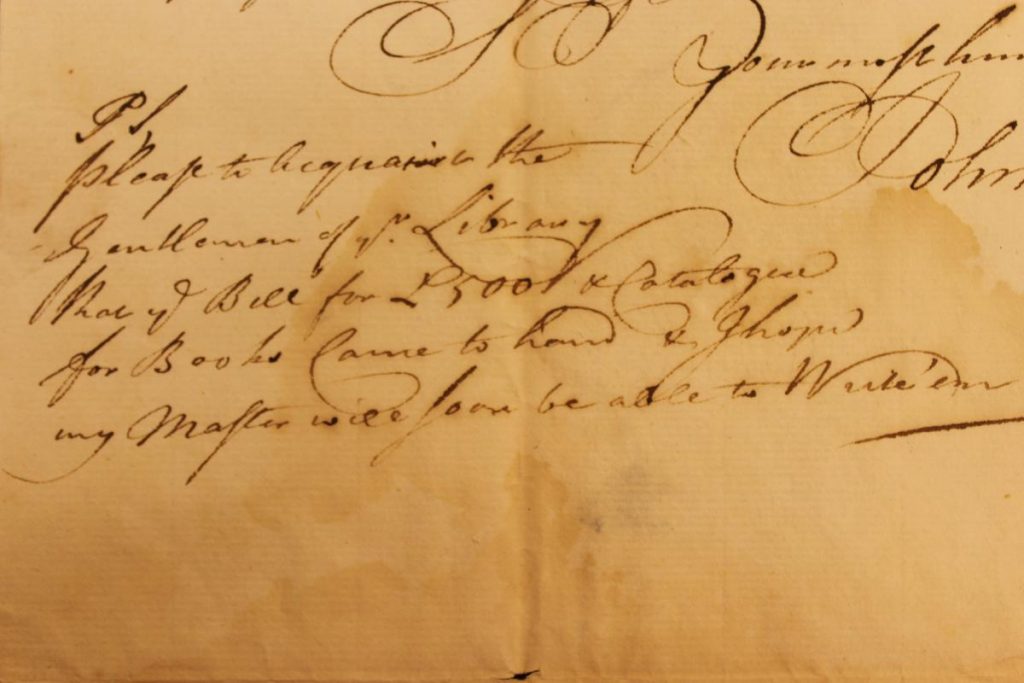 Sr
Your most hum
John
PS
Please to Acquaint the
Gentlemen of yr. Library
that ye Bill for £500 & Catalogue
for Books Came to hand & I hope
my Master will soon be able to Write 'em